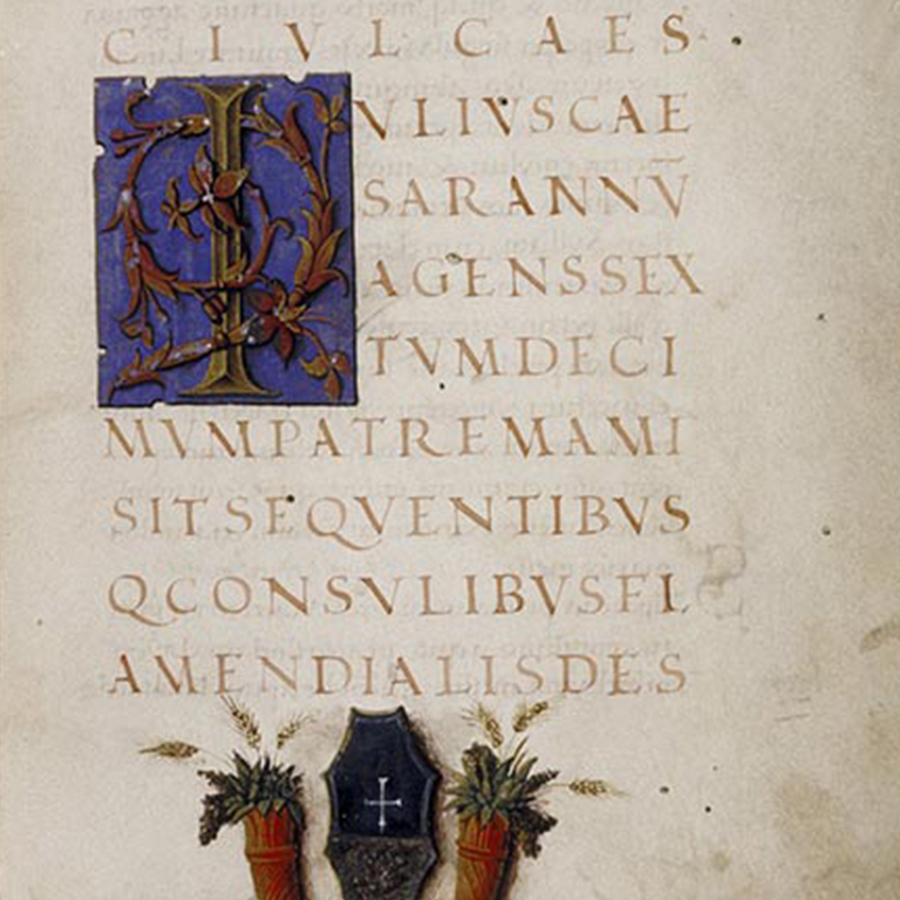 C I VL CAES
IVLIVSCAE
SARANNV̅
AGENSSEX
TVMDECI
MVMPATREMAMI
SITSEQVENTIBVS
QCONSVLIBVSFL
AMENDIALISDES